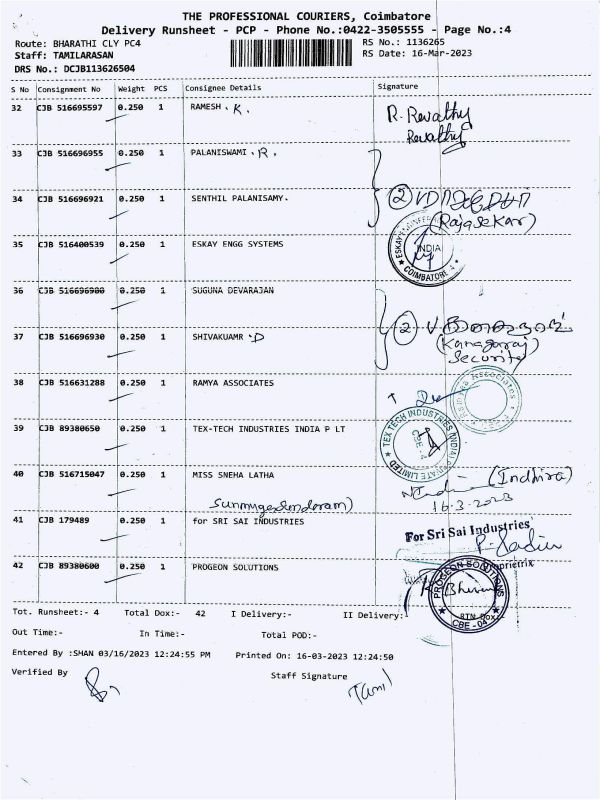 THE PROFESSIONAL COURIERS, Coimbatore
Delivery Runsheet - PCP - Phone No.:0422-3505555 - Page No.:4
Route: BHARATHI CLY PC4 RS No.: 1136265
Staff: TAMILARASAN RS Date: 16-Mar-2023
DRS No.: DCJB113626504
S No Consignment No Weight PCS Consignee Details Signature
32 CJB 516695597 0.250 1 RAMESH . K. R. Revathy
Revathy
33 CJB 516696955 0.250 1 PALANISWAMI . R.
34 CJB 516696921 0.250 1 SENTHIL PALANISAMY. 2
(Rajasekar)
35 CJB 516400539 0.250 1 ESKAY ENGG SYSTEMS INDIA COIMBATORE
36 CJB 516696980 0.250 1 SUGUNA DEVARAJAN
37 CJB 516696930 0.250 1 SHIVAKUAMR D 2
(Kanagaraj)
Security
38 CJB 516631288 0.250 1 RAMYA ASSOCIATES
39 CJB 89380650 0.250 1 TEX-TECH INDUSTRIES INDIA P LT TEX TECH INDUSTRIES (INDIA) PRIVATE LIMITED
40 CJB 516715047 0.250 1 MISS SNEHA LATHA (Indhira)
16-3-2023
41 CJB 179489 0.250 1 for SRI SAI INDUSTRIES For Sri Sai Industries
Proprietrix
42 CJB 89380600 0.250 1 PROGEON SOLUTIONS PROGEON SOLUTIONS CBE - 04
Tot. Runsheet:- 4 Total Dox:- 42 I Delivery:- II Delivery:- RTN Dox:-
Out Time:- In Time:- Total POD:-
Entered By :SHAN 03/16/2023 12:24:55 PM Printed On: 16-03-2023 12:24:50
Verified By Staff Signature
Tamil